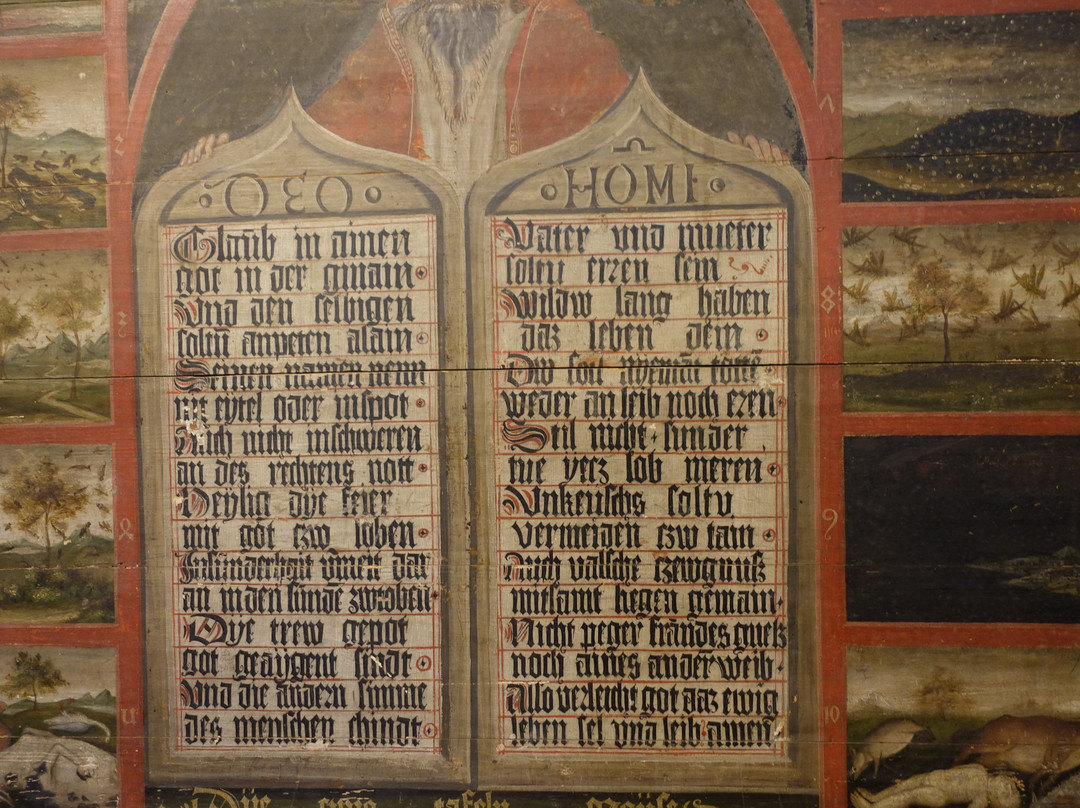 DEO
Glaub in ainen
got in der gmain
Vnd den selbigen
soltu anpeten alain
Seinen namen nenn
nit eytel oder inspot
Auch nicht inschweren
an des rechtens nott
Heylig dye feier
mit got czw loben
an
Dye trew gepot
got geaygent sindt
Vnd die andern
des menschen chindt
HOMI
Vater vnd mueter
soltu erren sein
Wildw lang haben
daz leben dein
Dw solt
weder an leib noch eren
Stil nicht sunder
tue yecz lob meren
Vnkeuschs soltu
vermeiden czw tain
Auch valsche czewgnuß
mitsamt liegen gemain
Nicht peger
noch aines ander weib
Also verleicht got daz ewig
leben sel vnd leib amen
Dye tafeln
2
3
8
9
10